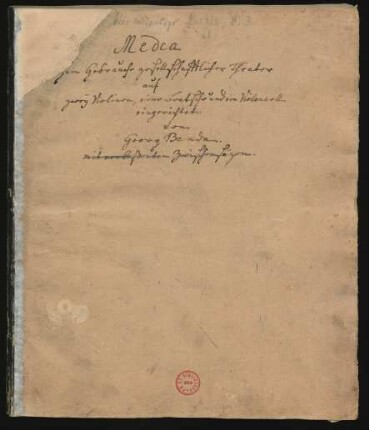 Medea
zum Gebrauche gesellschaftlicher Theater
auf
zwey Violinen, eine Bratsche und ein Violoncell
eingerichtet
von
Georg Benda.
mit Zwischensäzen.